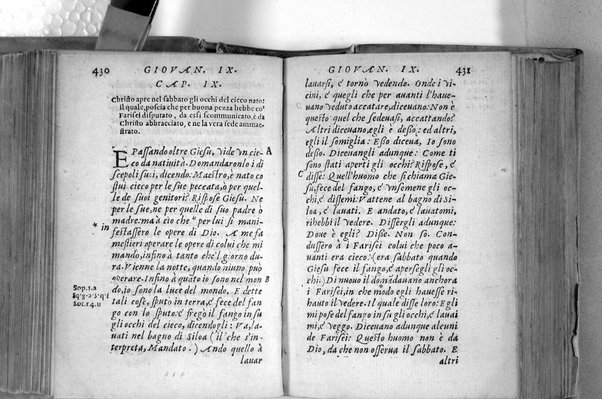 430
GIOVAN. IX.
CAP. IX.
Christo apre nel sabbato gli occhi del cieco nato:
il quale, poscia che per buona pezza hebbe co'
Farisei disputato, da essi scommunicato, è da
Christo abbracciato, e ne la vera fede ammae-
strato.
E PASSANDO oltre Giesu, vide vn cie- A
co da natiuità. Domandaronlo i di
scepoli suoi, dicendo: Maestro, è nato co
stui cieco per le sue peccata, ò per quel-
le de suoi genitori? Rispose Giesu. Ne
per le sue, ne per quelle di suo padre ò
madre: ma à cio che * per lui si mani-
* in
festassero le opere di Dio. A me fa
mestieri operare le opere di colui che mi
mandò, infino à tanto che'l giorno du-
ra. Vienne la notte, quando niuno può
operare. Infino à quāto io sono nel mon B
do, io sono la luce del mondo. E dette
Sop. 1. a
tali cose, sputò in terra, é fece del fan
go con lo sputo: é fregò il fango in su
gli occhi del cieco, dicendogli: Va, la-
uati nel bagno di Siloa (il che s'in-
terpreta, Mandato.) Andò quello à
lauar
GIOVAN. IX.
431
lauarsi, é tornò vedendo. Onde i vi-
cini, é quegli che per auanti l'haueu-
uano veduto accatare, diceuano: Non è
questo quel che sedeuasi, accattando?
Altri diceuano, egli è desso: ed altri,
egli il somiglia: Esso diceua, Io sono
desso. Diceuangli adunque: Come ti
sono stati aperti gli occhi? Rispose, é
C
disse: Quell'huomo che si chiama Gie-
su, fece del fango, é vnsemene gli oc-
chi, é dissemi: Vattene al bagno di Si-
loa, é lauati. E andato, é lauatomi,
rihebbi il vedere. Dissergli adunque:
Doue è egli? Disse. Non so. Con-
dussero à i Farisei colui che poco a-
uanti era cieco: (era sabbato quando
Giesu fece il fango, é apersegli gli oc-
chi.) Di nuouo il domandauano anchora
i Farisei, in che modo egli hauesse ri-
hauto il vedere. Il quale disse loro: Egli
mi pose del fango in su gli occhi, é lauai
mi, é veggo. Diceuano adunque alcuni
de Farisei: Questo huomo non è da
Dio, da che non osserua il sabbato. E
altri